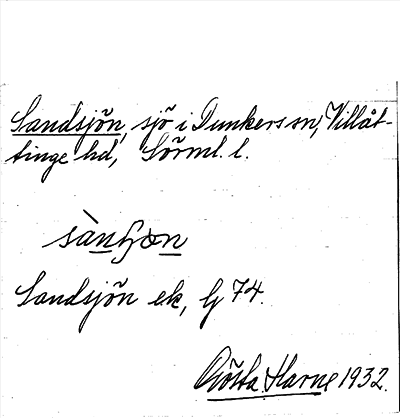 Sandsjön, sjö i Dunkers sn, Villåt-
tinge hd, Sörml. l.
Sandsjön ek, bl 74.
Gösta Harne 1932.